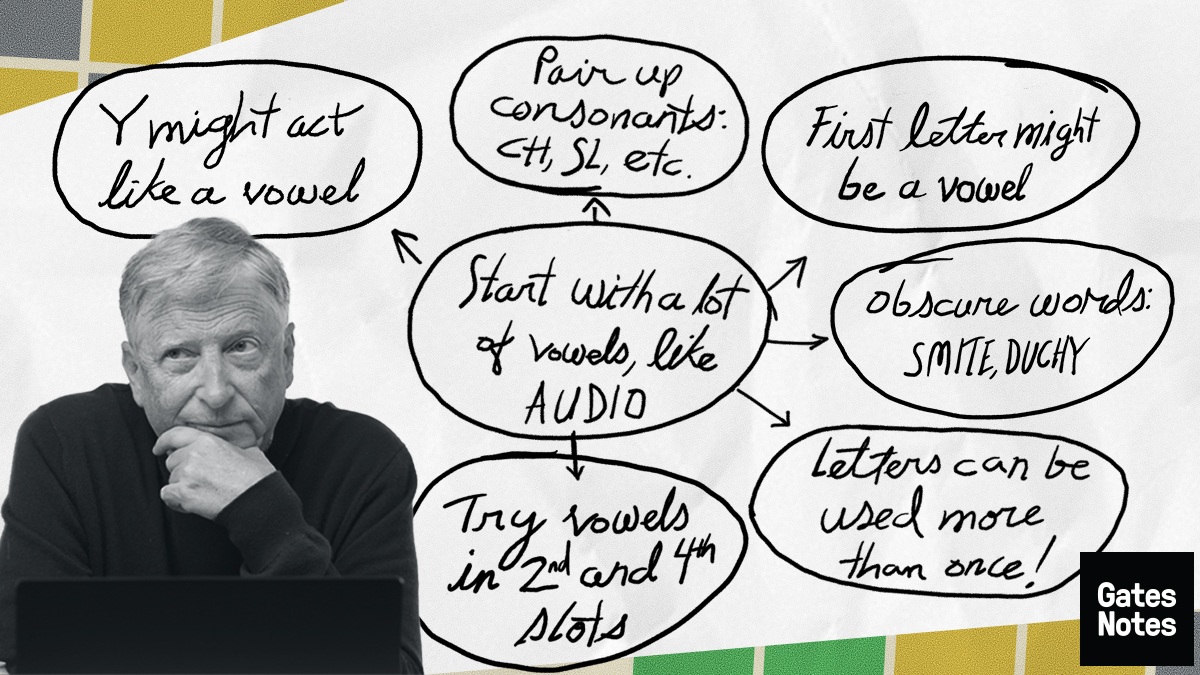 Y might act
like a vowel
Pair up
consonants:
CH, SL, etc.
First letter might
be a vowel
Start with a lot
of vowels, like
AUDIO
obscure words:
SMITE, DUCHY
Try vowels
in 2nd and 4th
slots
Letters can be
used more
than once!
Gates
Notes